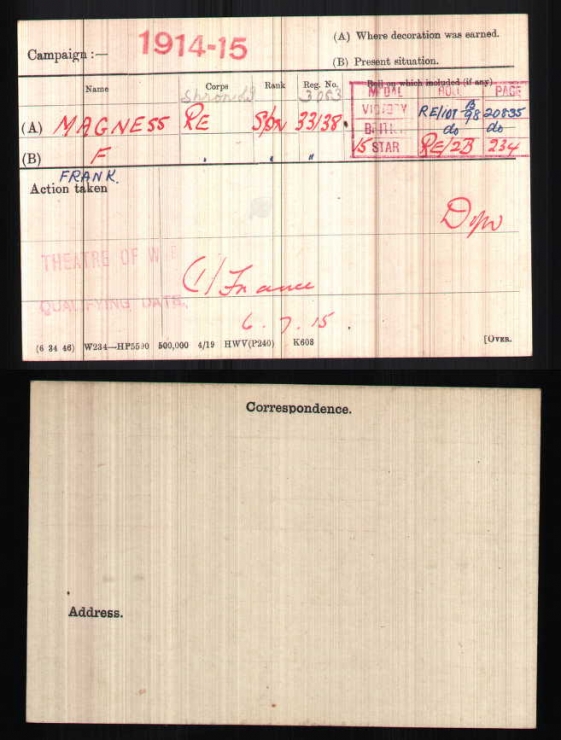 Campaign :— 1914-15
(A) Where decoration was earned.
(B) Present situation.
Name Corps Rank Reg. No. Roll on which included (if any).
3053
MEDAL ROLL PAGE
(A) MAGNESS RE Spr 33138. VICTORY RE/101 B98 20835
BRITISH do do
(B) F " " " 15 STAR RE/2B 234
FRANK.
Action taken
THEATRE OF WAR
(1) France
QUALIFYING DATE.
6.7.15.
(6 34 46) W234—HP5590 500,000 4/19 HWV(P240) K608 [OVER.
Correspondence.
Address.